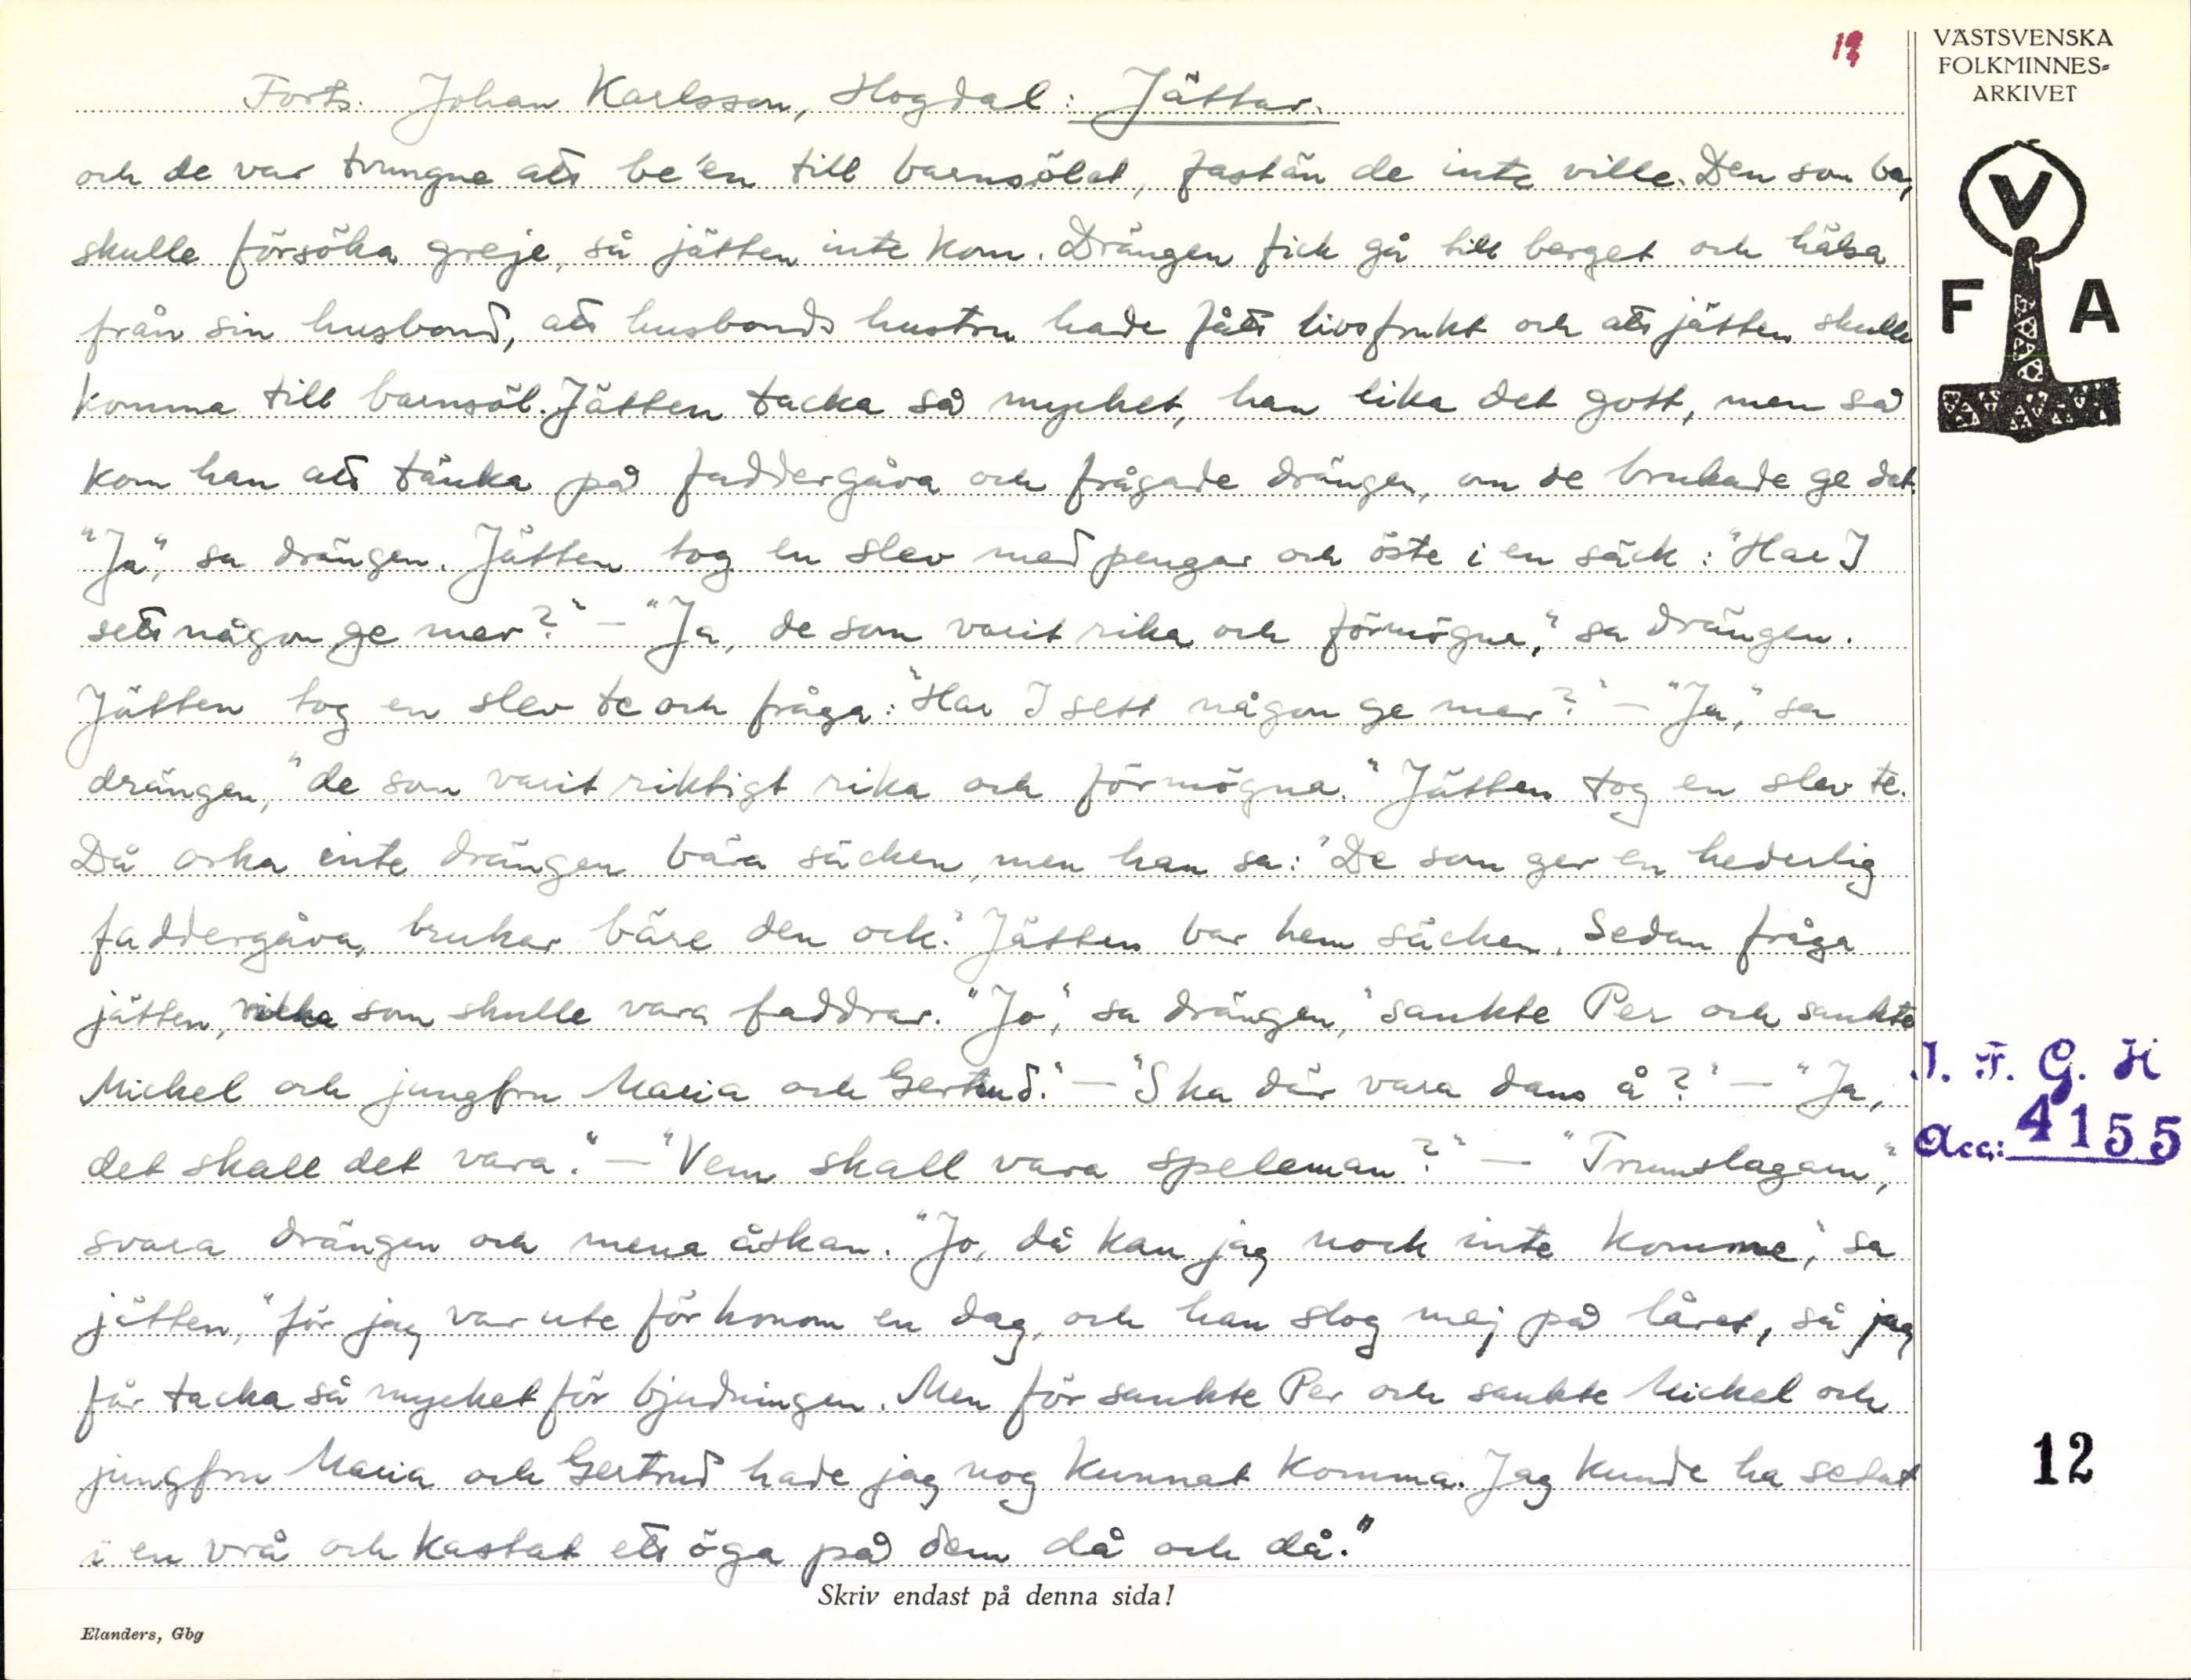 VÄSTSVENSKA
FOLKMINNES-
ARKIVET
V
F A
Forts. Johan Karlsson, Hogdal: Jättar.
och de var tvungna att be'en till barnsölet, fastän de inte ville. Den som ba,
skulle försöka greje, så jätten inte kom. Drängen fick gå till berget och hälsa
från sin husbond, att husbonds hustru hade fått livsfrukt och att jätten skulle
komma till barnsöl. Jätten tacka så mycket, han lika det gott, men så
kom han att tänka på faddergåva och frågade drängen, om de brukade ge det.
"Ja", sa drängen. Jätten tog en slev med pengar och öste i en säck: "Har I
sett någon ge mer?" – "Ja, de som varit rika och förmögna," sa drängen.
Jätten tog en slev te och fråga: "Har I sett någon ge mer?" – "Ja," sa
drängen, "de som varit riktigt rika och förmögna." Jätten tog en slev te.
Då orka inte drängen bära säcken, men han sa: "De som ger en hederlig
faddergåva, brukar bäre den ock." Jätten bar hem säcken. Sedan fråga
jätten, vilka som skulle vara faddrar. "Jo", sa drängen, "sankte Per och sankte
Mickel och jungfru Maria och Gertrud." – "Ska där vara dans å?" – "Ja,
det skall det vara." – "Vem skall vara speleman?" – "Trumslagarn",
svara drängen och mena åskan. "Jo, då kan jag nock inte komme," sa
jätten, "för jag var ute för honom en dag, och han slog mej på låret, så jag
får tacka så mycket för bjudningen. Men för sankte Per och sankte Mickel och
jungfru Maria och Gertrud hade jag nog kunnat komma. Jag kunde ha setat
i en vrå och kastat ett öga på dem då och då."
I. F. G. H
Acc: 4155
12
Skriv endast på denna sida!
Elanders, Gbg